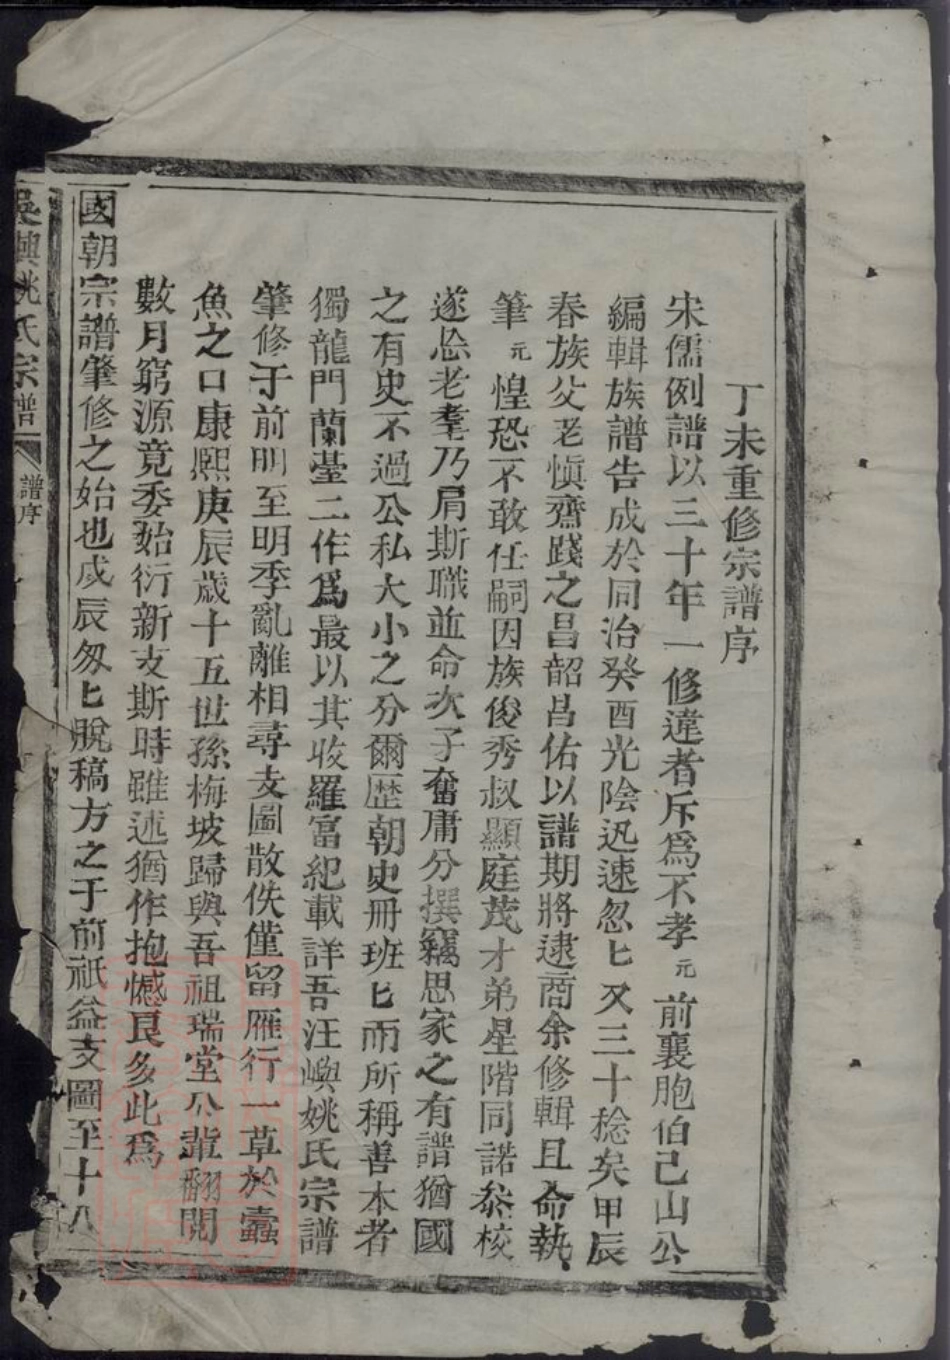 丁未重修宗譜序
宋儒例譜以三十年一修違者斥爲不孝元前襄胞伯己山公
編輯族譜告成於同治癸酉光陰迅速忽匕又三十稔矣甲辰
春族父老愼齋踐之昌韶昌佑以譜期將逮商余修輯且命執
筆元惶恐不敢任嗣因族俊秀叔顯庭茂才弟星階同諾叅校
遂忘老耄乃肩斯職並命次子奮庸分撰竊思家之有譜猶國
之有史不過公私大小之分爾歴朝史册班匕而所稱善本者
獨龍門蘭臺二作爲最以其收羅富紀載詳吾汪嶼姚氏宗譜
肇修于前明至明季亂離相尋支圖散佚僅留雁行一草於蠹
魚之口康熙庚辰歲十五世孫梅坡歸與吾祖瑞堂公輩翻閱
數月窮源竟委始衍新支斯時雖述猶作抱憾良多此爲
國朝宗譜肇修之始也戊辰匆匕脫稿方之于前祇益支圖至十八
吳興姚氏宗譜 譜序